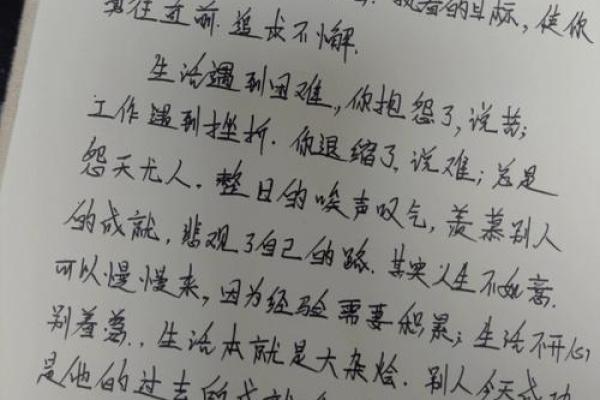 勇往直前.追求不懈.
执着的目标,使你
生活遇到困难,你抱怨了,说苦;
工作遇到挫折.你退缩了,说难;总是
怨天尤人.整日的唉声叹气,羡慕别人
的成就,悲观了自己的路.其实人生不如意.
可以慢慢来,因为经验需要积累;生活不开心
别羞羡..生活本就是大杂烩.别人今天成功
是他的过去的成就